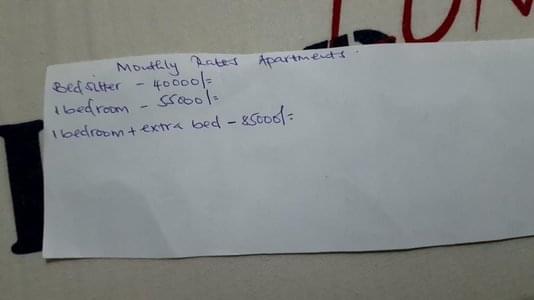 Monthly Rates Apartments.
Bedsitter - 40000/=
1 bedroom - 55000/=
1 bedroom + extra bed - 85000/=